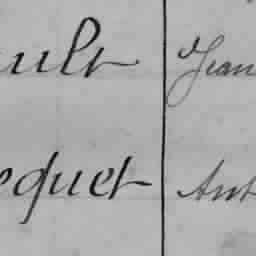 ault Jean
equet Ant